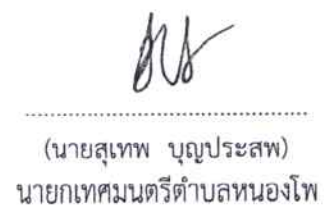 (นายสุเทพ บุญประสพ)
นายกเทศมนตรีตำบลหนองโพ